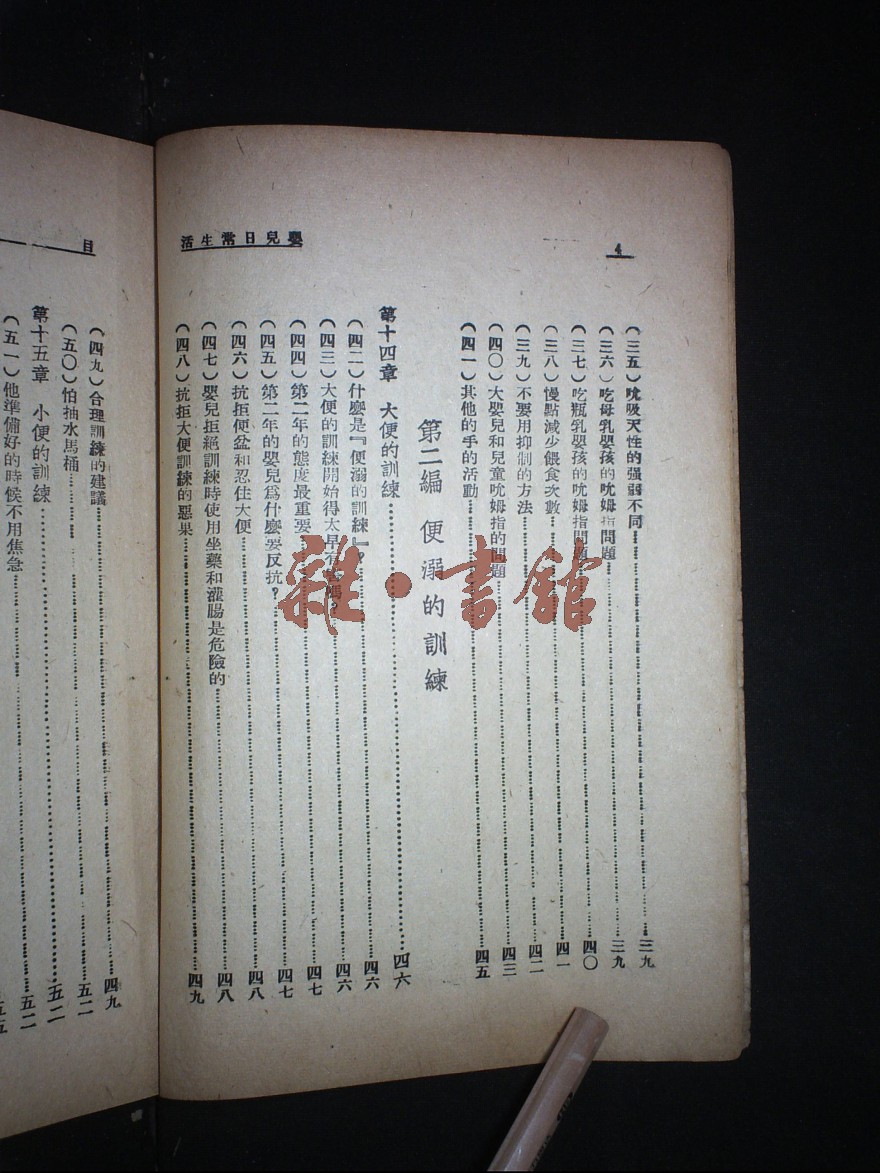 4
嬰兒日常生活
(三五)吮吸天性的强弱不同……三九
(三六)吃母乳嬰孩的吮姆指問題……三九
(三七)吃瓶乳嬰孩的吮姆指問題……四〇
(三八)慢點減少餵食次數……四一
(三九)不要用抑制的方法……四二
(四〇)大嬰兒和兒童吮姆指的問題……四三
(四一)其他的手的活動……四五
第二編 便溺的訓練
第十四章 大便的訓練……四六
(四二)什麼是『便溺的訓練』?……四六
(四三)大便的訓練開始得太早有……四六
(四四)第二年的態度最重要……四七
(四五)第二年的嬰兒爲什麼要反抗?……四七
(四六)抗拒便盆和忍住大便……四八
(四七)嬰兒拒絕訓練時使用坐藥和灌腸是危險的……四八
(四八)抗拒大便訓練的惡果……四九
目
(四九)合理訓練的建議……四九
(五〇)怕抽水馬桶……五二
第十五章 小便的訓練……五二
(五一)他準備好的時候不用焦急……五二
雜·書館